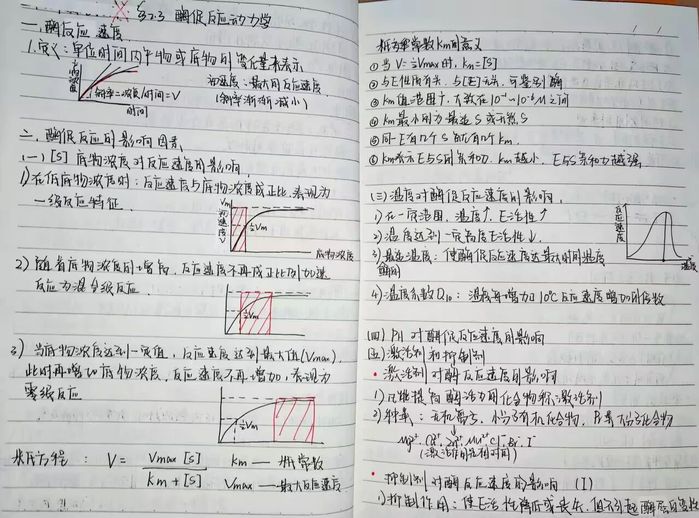 §2.3 酶促反应动力学
一、酶反应速度
1.定义：单位时间内产物或底物的变化量来表示
产物浓度
斜率=浓度/时间=V
时间
初速度：最大的反应速度
(斜率渐渐减小)
二、酶促反应的影响因素
(一)[S]底物浓度对反应速度的影响
1)在低底物浓度时：反应速度与底物浓度成正比，表现为
一级反应特征.
Vm
初速度V
½Vm
底物浓度
2)随着底物浓度的增高，反应速度不再成正比例加速
反应为混合级反应.
½Vm
3)当底物浓度达到一定值，反应速度达到最大值(Vmax),
此时再增加底物浓度，反应速度不再增加，表现为
零级反应
½Vm
米氏方程： V = Vmax [S] / Km + [S]
Km — 米氏常数
Vmax — 最大反应速度
米氏常数Km的意义
①当V=½Vmax时，Km=[S]
②与E性质有关，与[E]无关，可鉴别酶
③Km值范围广，大多在10⁻⁶~10⁻¹M之间
④Km最小的为最适S或天然S
⑤同一E有几个S就有几个Km.
⑥Km表示E与S的亲和力，Km越小，E与S亲和力越强.
(三)温度对酶促反应速度的影响.
1)在一定范围，温度↑，E活性↑
2)温度达到一定高度E活性↓.
3)最适温度：使酶促反应速度达最大时的温度
反应速度
温度
4)温度系数Q₁₀：温度每增加10℃反应速度增加的倍数
(四)PH对酶促反应速度的影响
(五)激活剂和抑制剂
·激活剂对酶反应速度的影响
1)凡能提高酶活力的化合物称激活剂
2)种类：无机离子，小分子有机化合物，
Mg²⁺.
·抑制剂对酶反应速度的影响 (I)
1)抑制作用：使E活性降低或丧失，但不引起酶蛋白变性